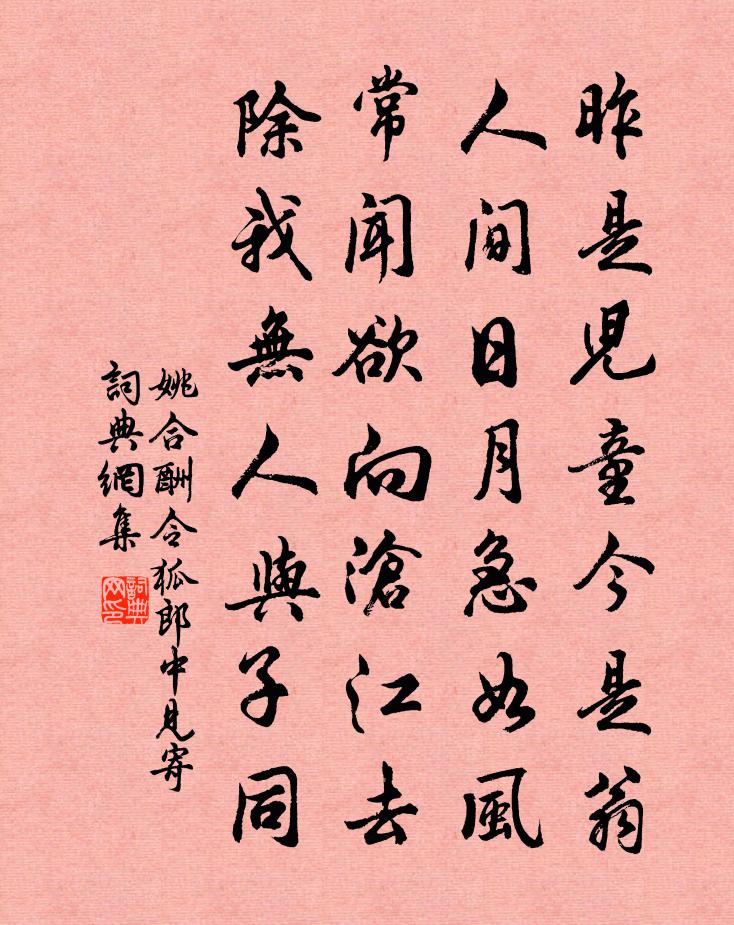 昨是児童今是翁
人間日月急如風
常聞欲向滄江去
除我無人與子同
姚合酬令狐郎中見寄
詞典網集
詞典网印